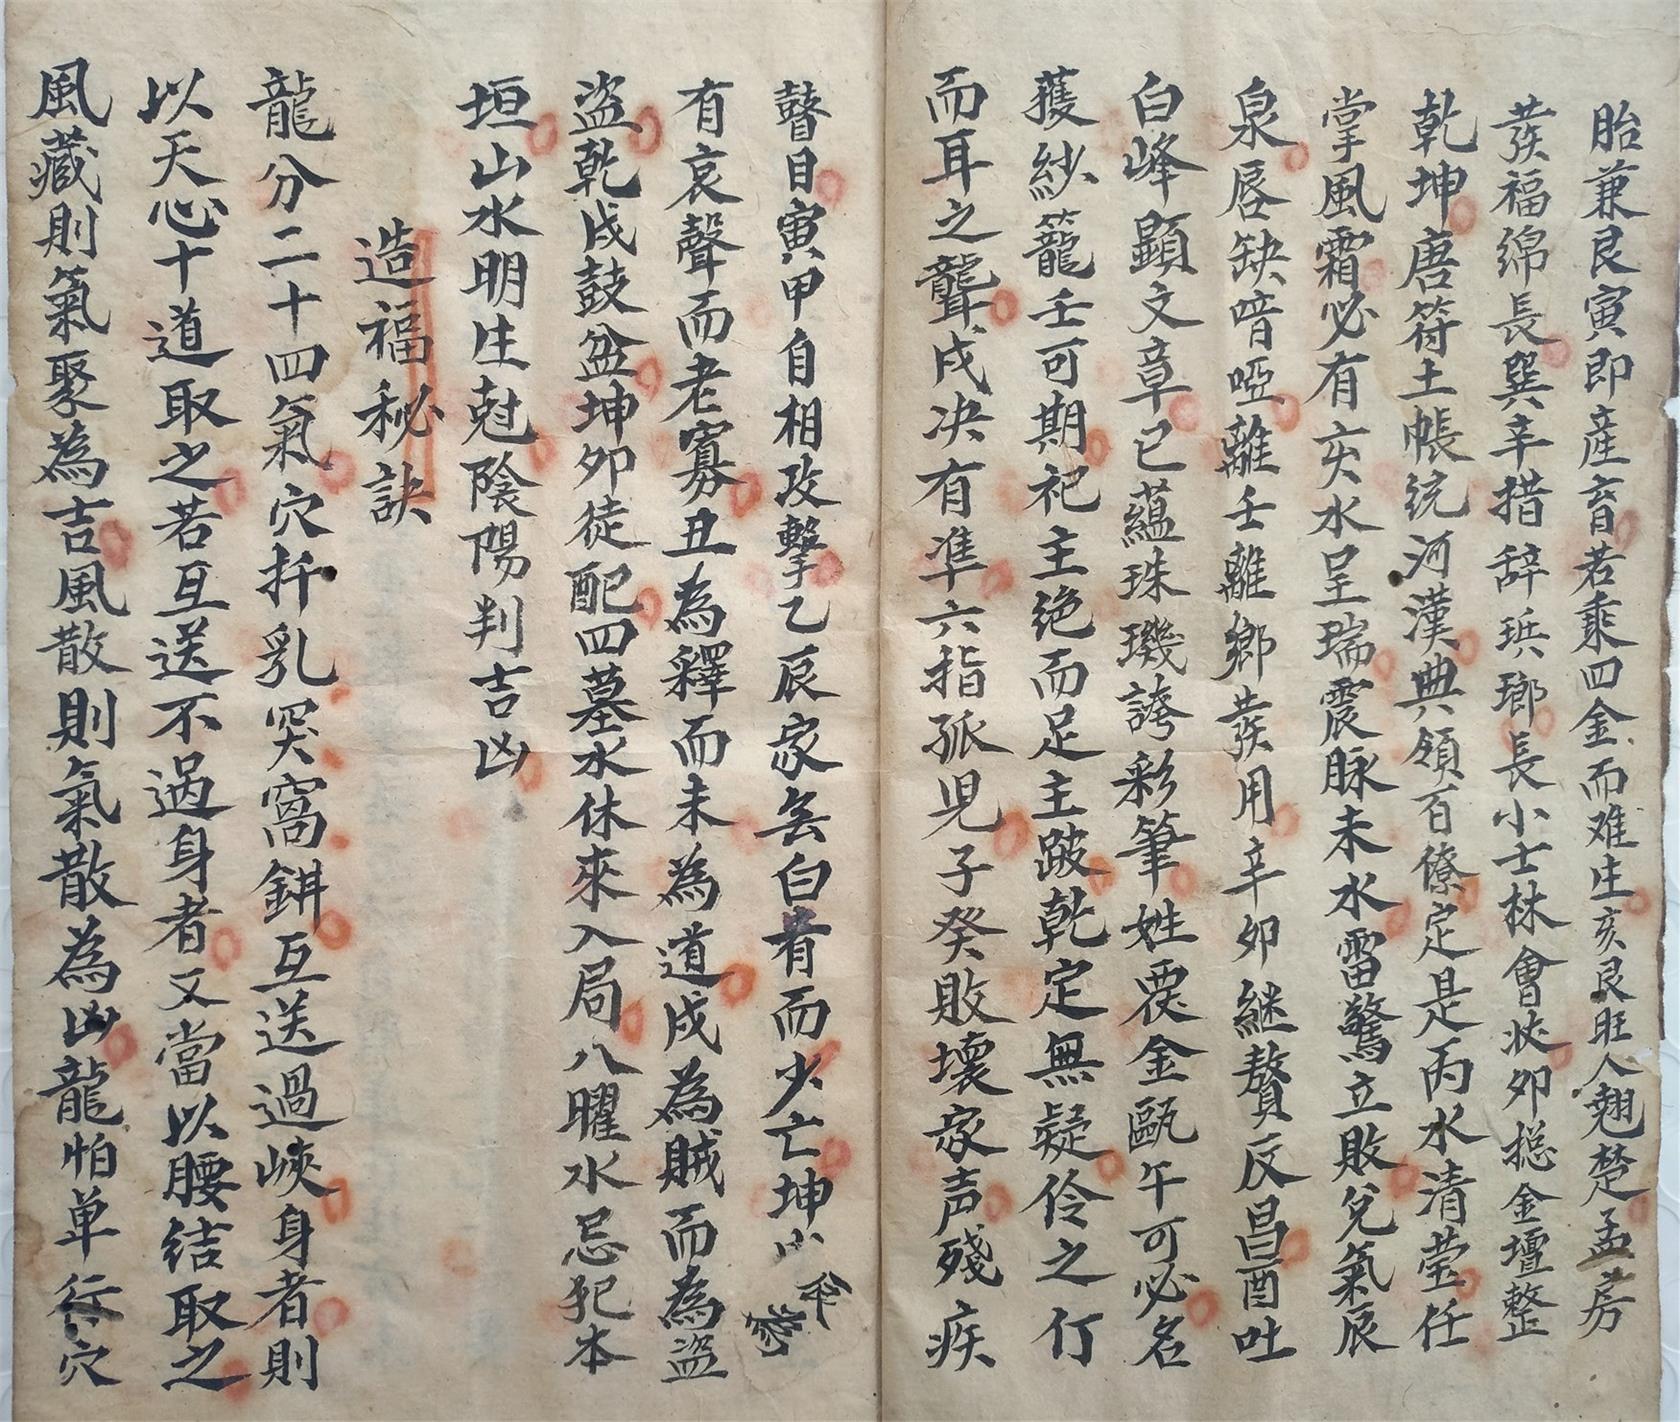 胎兼艮寅即產育若乘四金而难生亥艮旺人翹楚孟房
發福綿長巽辛措辞珙瑯長小士林會狀卯揔金壇整
乾坤唐符土帳統河漢典領百僚定是丙水清莹任
掌風霜必有亥水呈瑞震脉未水雷驚立敗兌氣辰
泉唇缺喑啞離壬離鄉發用辛卯継贅反昌酉吐
白峰顯文章巳蘊珠璣誇彩筆姓覆金甌午可必名
獲紗籠壬可期祀主绝而足主跛乾定無疑伶之仃
而耳之聾戌决有準六指孤児子癸敗壞家声殘疾
瞽目寅甲自相攻擊乙辰家無白首而少亡坤
有哀聲而老寡丑為釋而未為道戌為賊而為盜
盜乾戌鼓盆坤卯徒配四墓水休來入局八曜水忌犯本
垣山水明生尅陰陽判吉凶
造福秘訣
龍分二十四氣穴扦乳突窩鉗互送過峽身者則
以天心十道取之若互送不過身者又當以腰结取之
風藏則氣聚為吉風散則氣散為凶龍怕单行穴